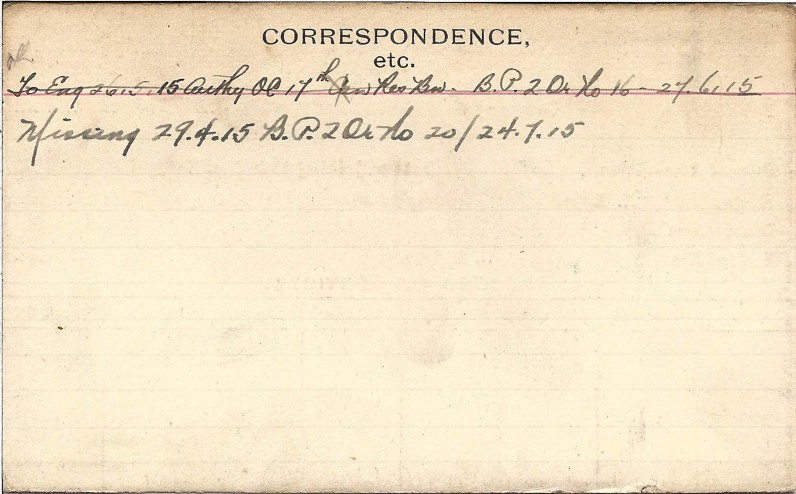 CORRESPONDENCE,
etc.
To Eng 26.5.15 Authy OC 17th Res Bn. B.P. 2 Or No 16 - 27.6.15
Missing 29.4.15 B.P. 2 Or No 20/24.7.15